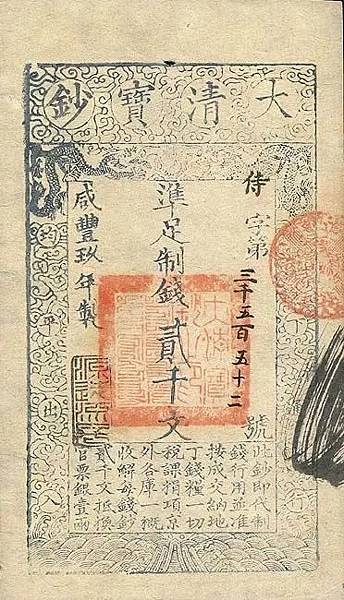 大清寶鈔
行
侍字第三千五百五十二號
準足制錢貳千文
咸豐玖年製
均平出入
此鈔即代制
錢行用並准
按成交納地
丁錢糧一切
稅課捐項京
外各庫一概
收解每錢鈔
貳千文抵換
官票銀壹兩